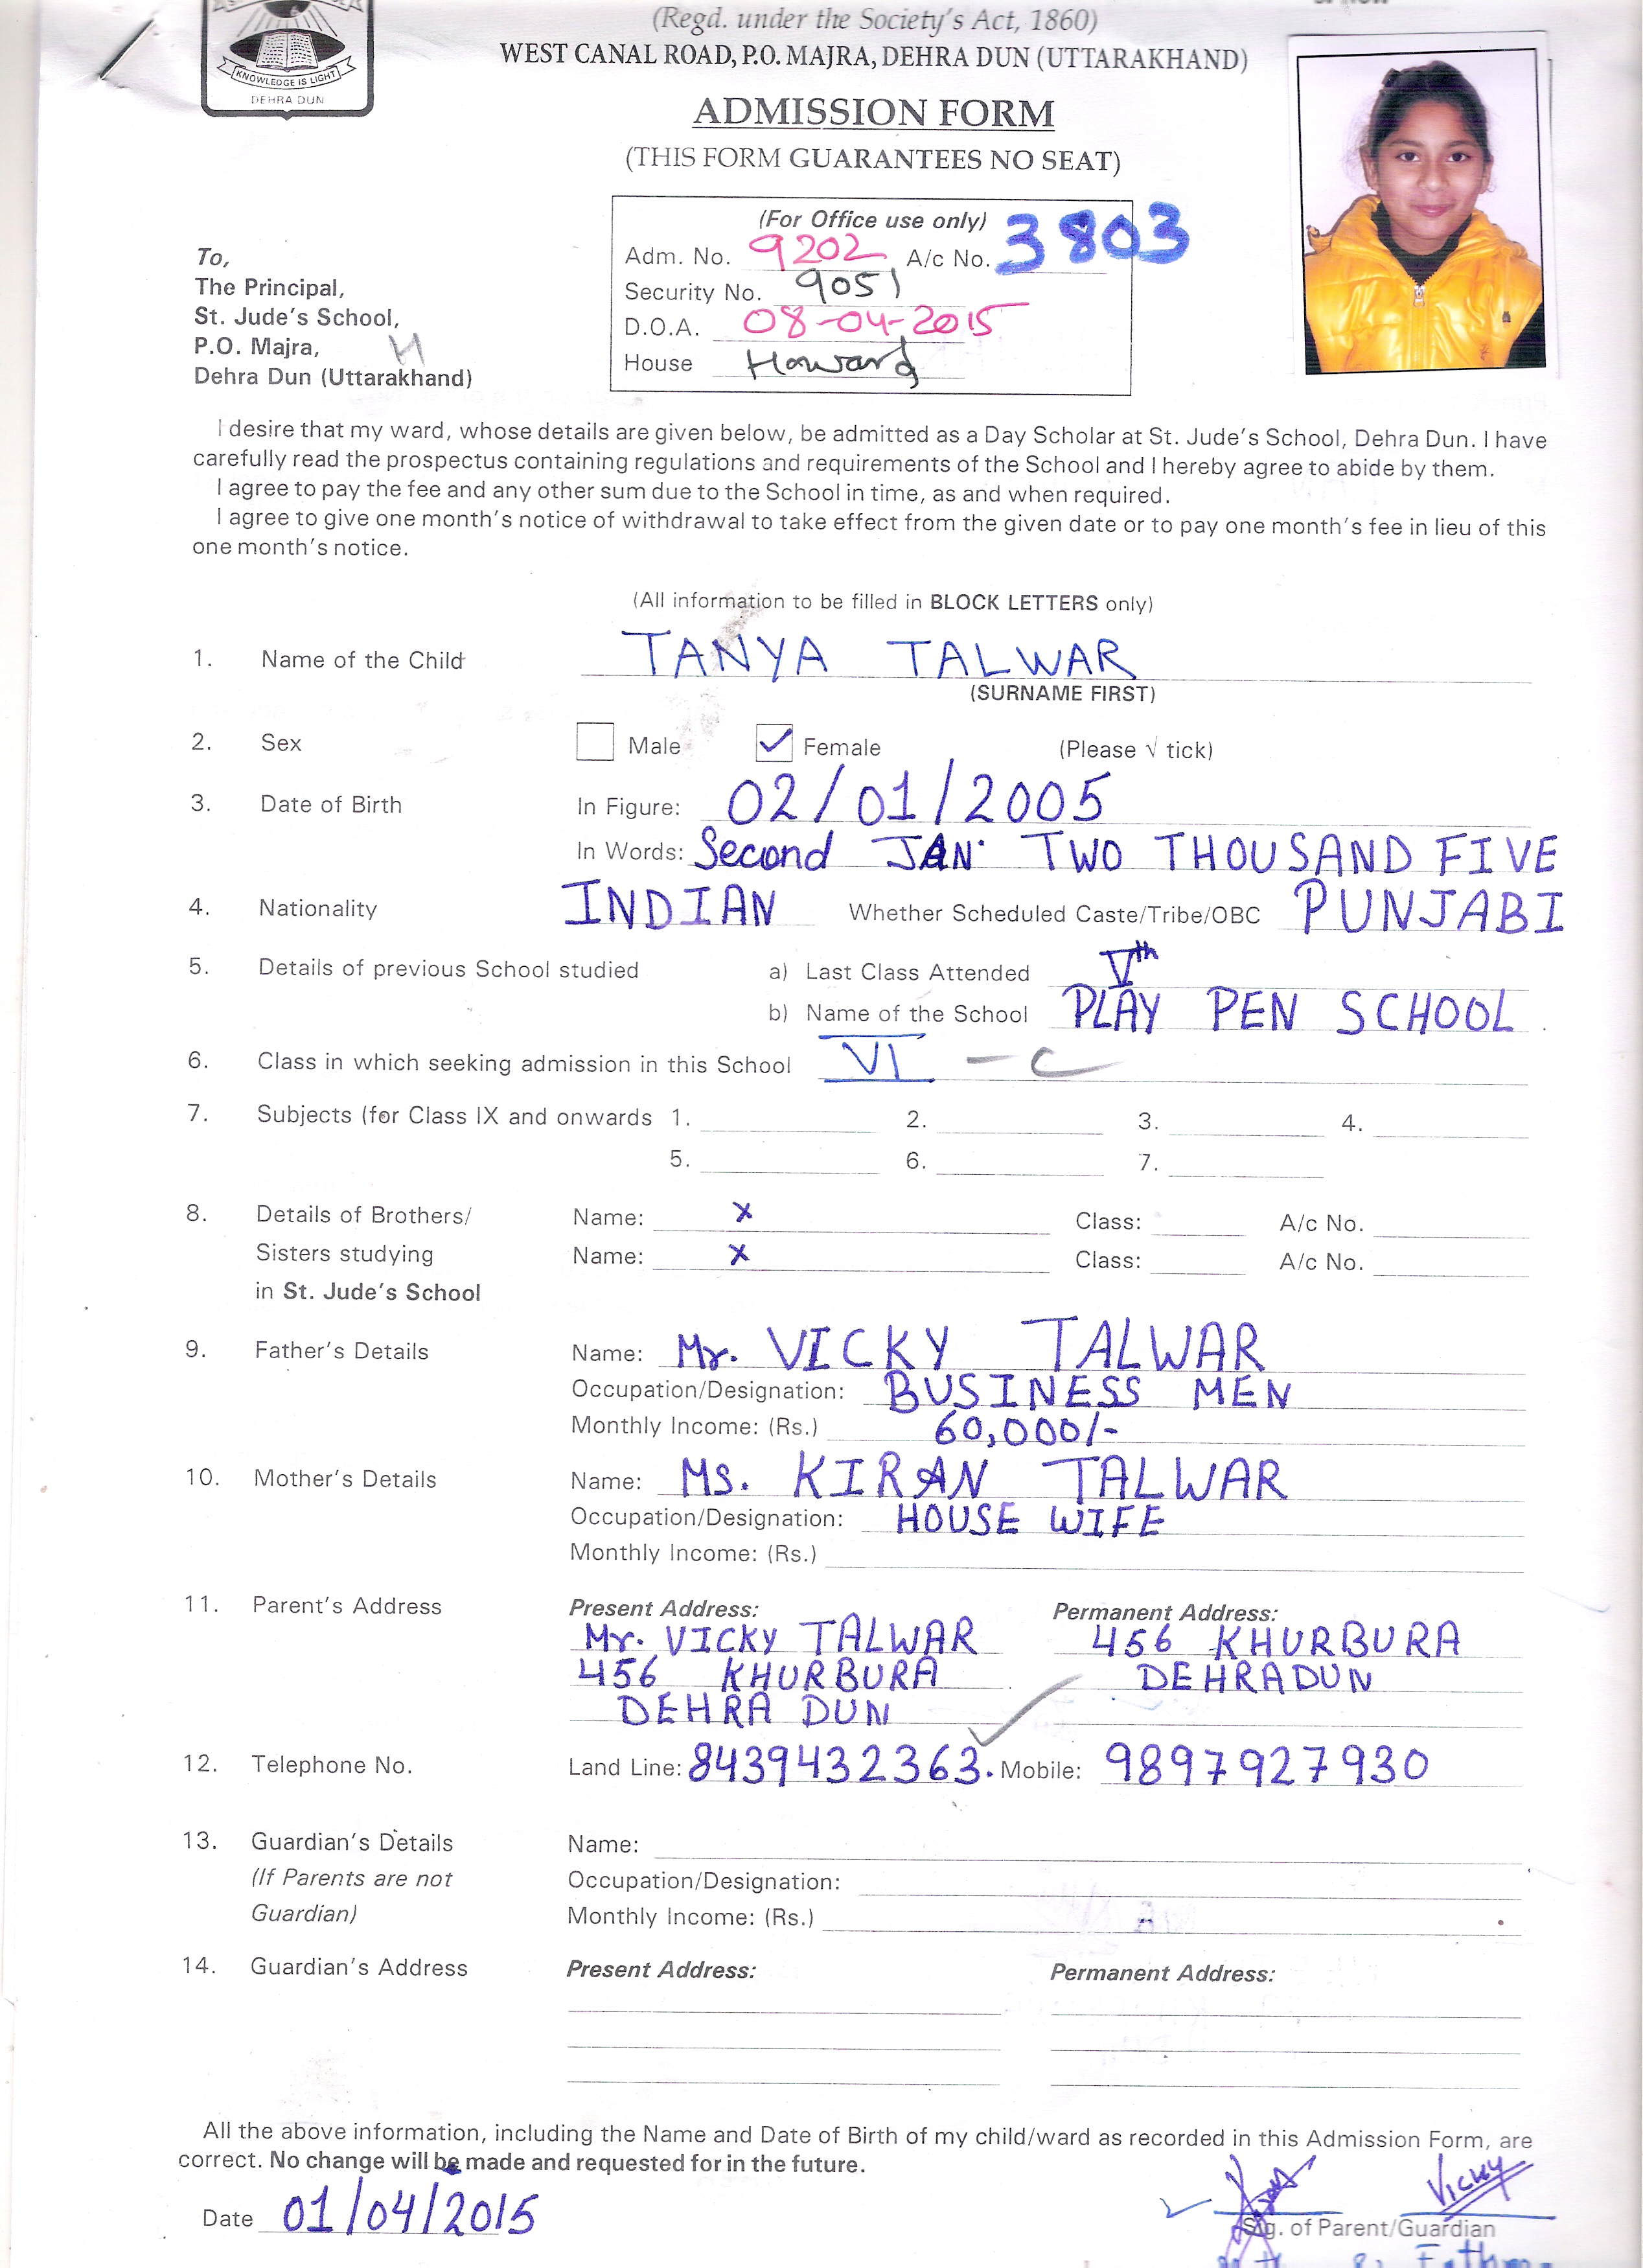 KNOWLEDGE IS LIGHT
DEHRA DUN
(Regd. under the Society's Act, 1860)
WEST CANAL ROAD, P.O. MAJRA, DEHRA DUN (UTTARAKHAND)
ADMISSION FORM
(THIS FORM GUARANTEES NO SEAT)
(For Office use only)
Adm. No. 9202 A/c No. 3803
Security No. 9051
D.O.A. 08-04-2015
House Howard
To,
The Principal,
St. Jude's School,
P.O. Majra, H
Dehra Dun (Uttarakhand)
I desire that my ward, whose details are given below, be admitted as a Day Scholar at St. Jude's School, Dehra Dun. I have
carefully read the prospectus containing regulations and requirements of the School and I hereby agree to abide by them.
I agree to pay the fee and any other sum due to the School in time, as and when required.
I agree to give one month's notice of withdrawal to take effect from the given date or to pay one month's fee in lieu of this
one month's notice.
(All information to be filled in BLOCK LETTERS only)
1. Name of the Child TANYA TALWAR
(SURNAME FIRST)
2. Sex Male ✓ Female (Please √ tick)
3. Date of Birth In Figure: 02/01/2005
In Words: Second JAN. TWO THOUSAND FIVE
4. Nationality INDIAN Whether Scheduled Caste/Tribe/OBC PUNJABI
5. Details of previous School studied a) Last Class Attended Vth
b) Name of the School PLAY PEN SCHOOL
6. Class in which seeking admission in this School VI - C
7. Subjects (for Class IX and onwards 1. 2. 3. 4.
5. 6. 7.
8. Details of Brothers/ Name: x Class: A/c No.
Sisters studying Name: x Class: A/c No.
in St. Jude's School
9. Father's Details Name: Mr. VICKY TALWAR
Occupation/Designation: BUSINESS MEN
Monthly Income: (Rs.) 60,000/-
10. Mother's Details Name: MS. KIRAN TALWAR
Occupation/Designation: HOUSE WIFE
Monthly Income: (Rs.)
11. Parent's Address Present Address: Permanent Address:
Mr. VICKY TALWAR 456 KHURBURA
456 KHURBURA DEHRADUN
DEHRA DUN
12. Telephone No. Land Line: 8439432363. Mobile: 9897927930
13. Guardian's Details Name:
(If Parents are not Occupation/Designation:
Guardian) Monthly Income: (Rs.)
14. Guardian's Address Present Address: Permanent Address:
All the above information, including the Name and Date of Birth of my child/ward as recorded in this Admission Form, are
correct. No change will be made and requested for in the future.
Vicky
Date 01/04/2015
Sig. of Parent/Guardian